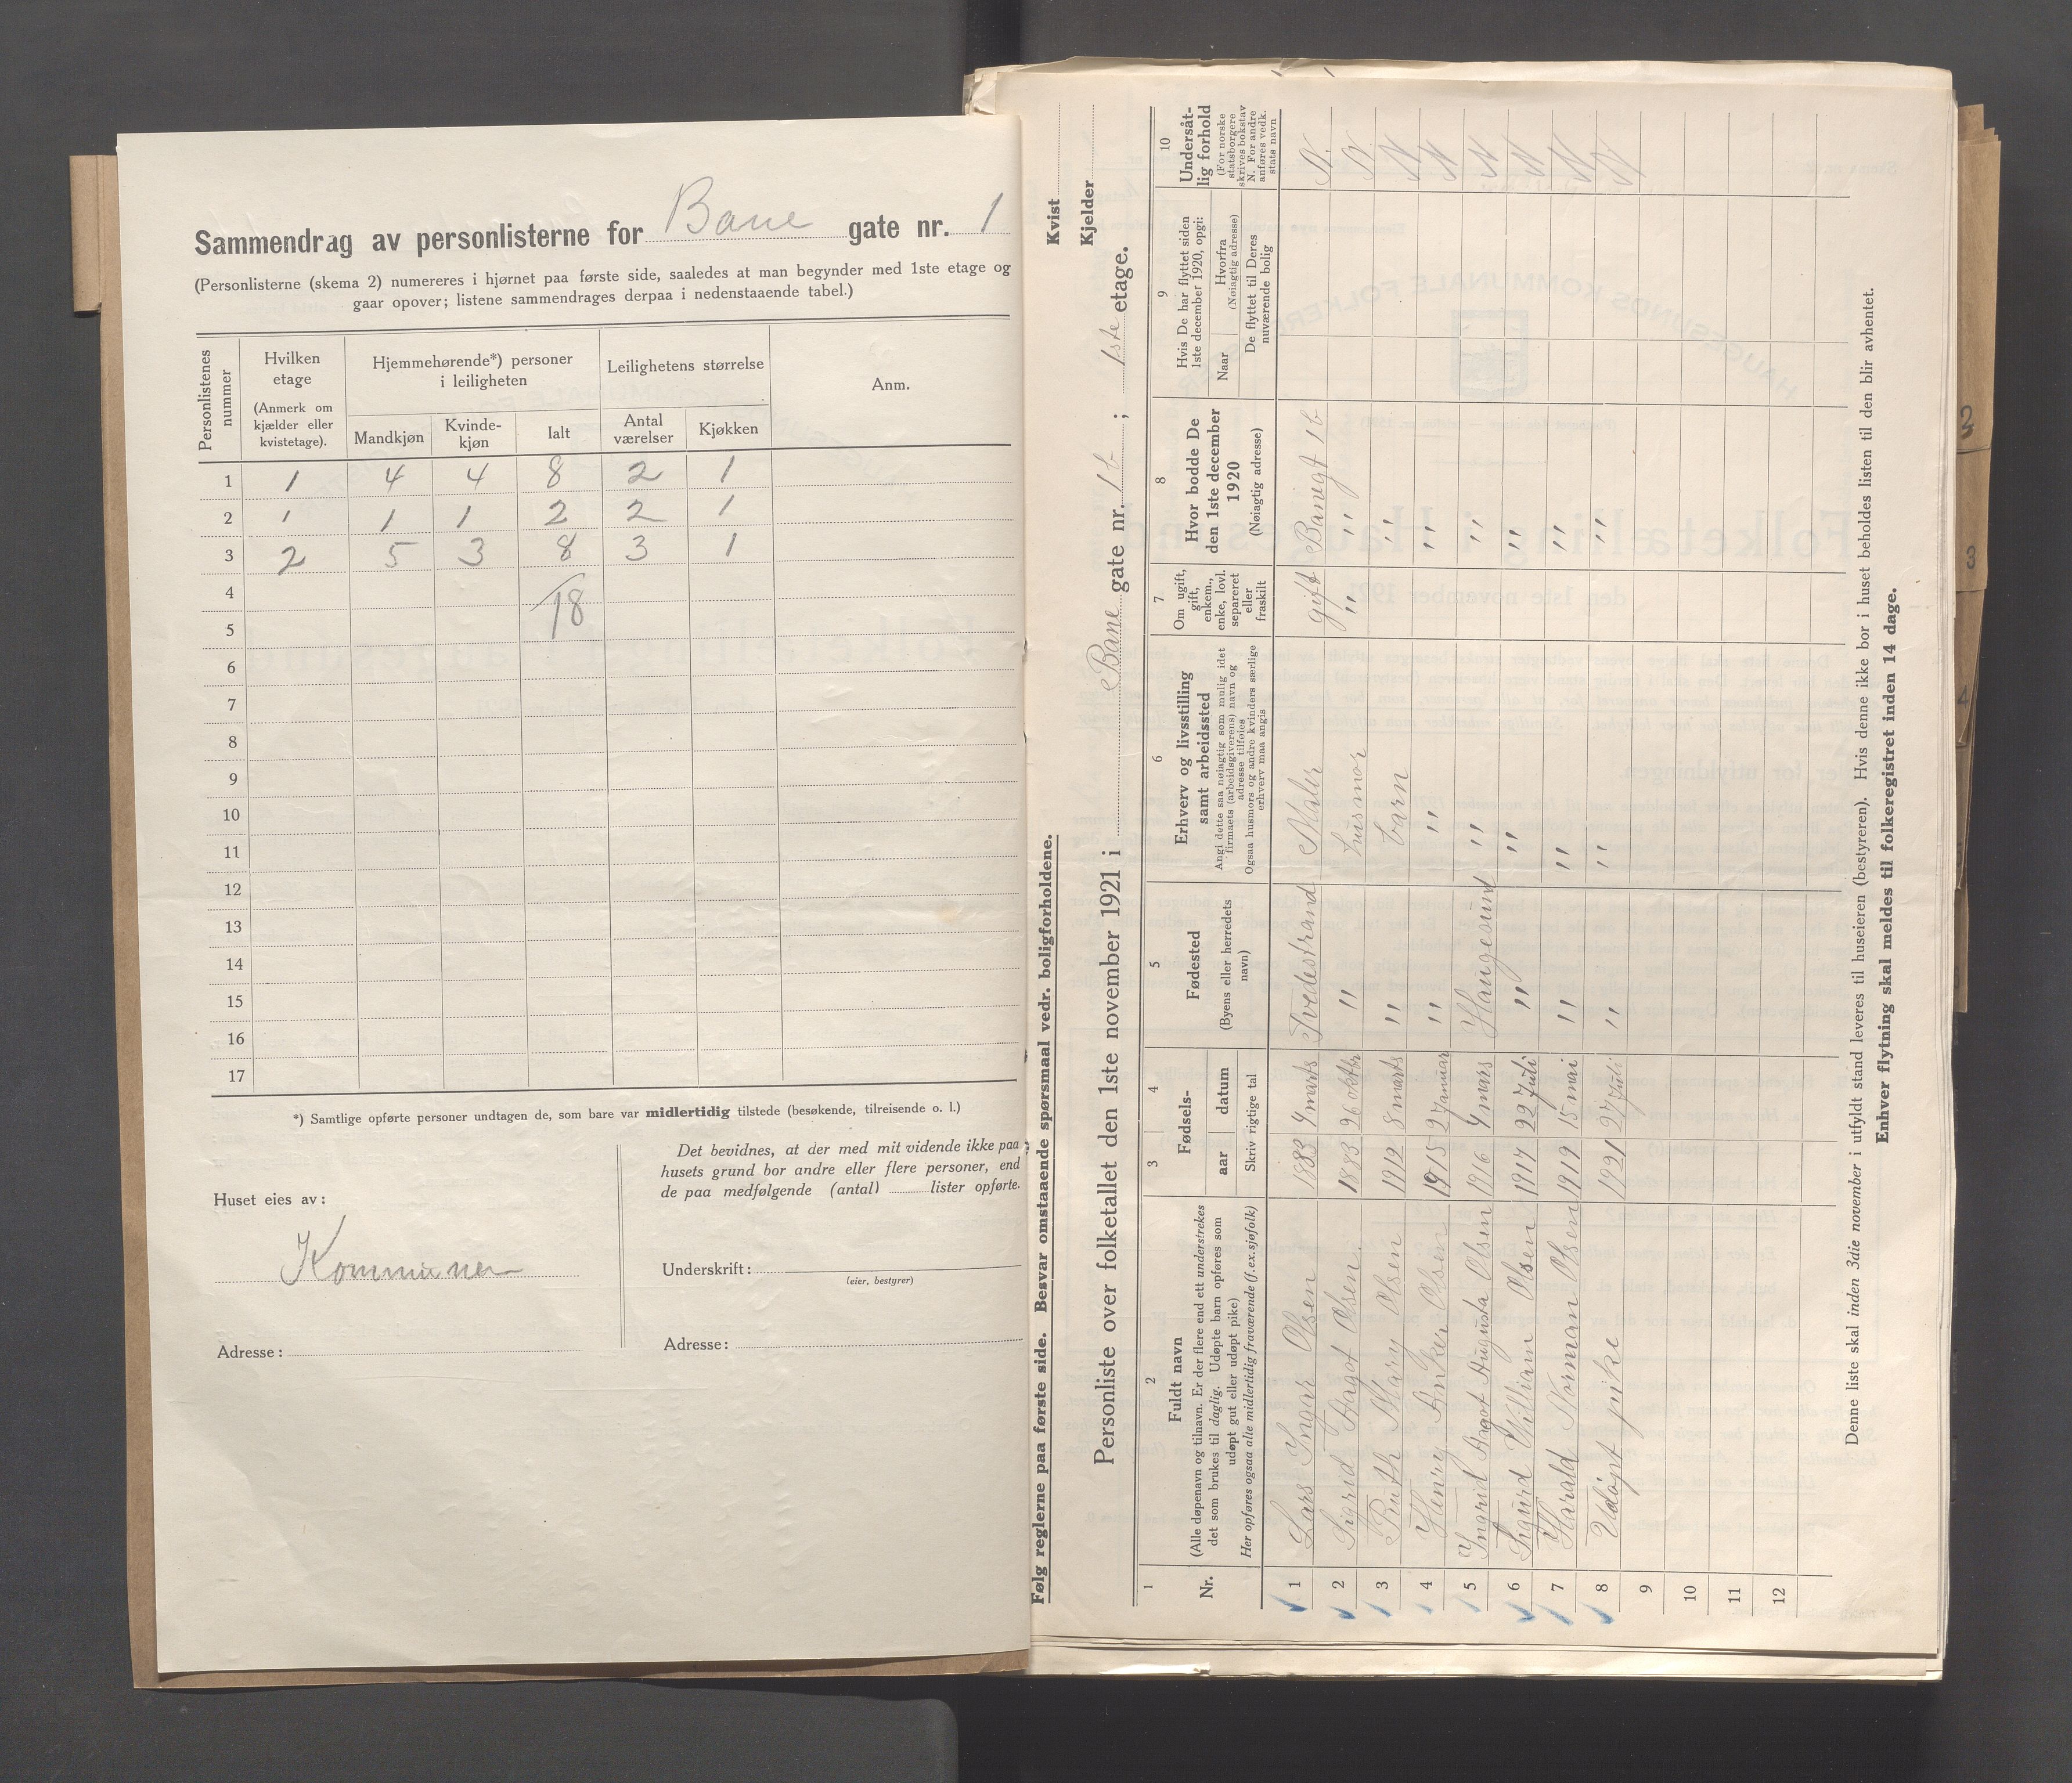 Sammendrag av personlisterne for Bane gate nr. 1
(Personlisterne (skema 2) numereres i hjørnet paa første side, saaledes at man begynder med 1ste etage og
gaar opover; listene sammendrages derpaa i nedenstaaende tabel.)
Personlistenes nummer | Hvilken etage (Anmerk om kjælder eller kvistetage). | Hjemmehørende*) personer i leiligheten | Leilighetens størrelse | Anm.
Mandkjøn | Kvinde-kjøn | Ialt | Antal værelser | Kjøkken
1 | 1 | 4 | 4 | 8 | 2 | 1
2 | 1 | 1 | 1 | 2 | 2 | 1
3 | 2 | 5 | 3 | 8 | 3 | 1
4
18
5
6
7
8
9
10
11
12
13
14
15
16
17
*) Samtlige opførte personer undtagen de, som bare var midlertidig tilstede (besøkende, tilreisende o. l.)
Huset eies av:
Kommunen
Adresse:
Det bevidnes, at der med mit vidende ikke paa
husets grund bor andre eller flere personer, end
de paa medfølgende (antal) lister opførte.
Underskrift:
(eier, bestyrer)
Adresse:
Følg reglerne paa første side. Besvar omstaaende spørsmaal vedr. boligforholdene.
Kvist
Kjelder
Personliste over folketallet den 1ste november 1921 i Bane gate nr. 1b ; 1ste etage.
1 | 2 | 3 | 4 | 5 | 6 | 7 | 8 | 9 | 10
Nr.
Fuldt navn
(Alle døpenavn og tilnavn. Er der flere end ett understrekes
det som brukes til daglig. Udøpte barn opføres som
udøpt gut eller udøpt pike)
Her opføres ogsaa alle midlertidig fraværende (f.ex. sjøfolk)
Fødsels-
aar | datum
Skriv rigtige tal
Fødested
(Byens eller herredets
navn)
Erhverv og livsstilling
samt arbeidssted
Angi dette saa nøiagtig som mulig idet
firmaets (arbeidsgiverens) navn og
adresse tilføies
Ogsaa husmors og andre kvinders særlige
erhverv maa angis
Om ugift,
gift,
enkem.,
enke, lovl.
separeret
eller
fraskilt
Hvor bodde De
den 1ste december
1920
(Nøiagtig adresse)
Hvis De har flyttet siden
1ste december 1920, opgi:
Naar | Hvorfra
(Nøiagtig adresse)
De flyttet til Deres
nuværende bolig
Undersåt-
lig forhold
(For norske
statsborgere
skrives bokstav
N. For andre
anføres vedk.
stats navn
1 | Lars Ingar Olsen | 1883 | 4 marts | Tvedestrand | Maler | gift | Banegt 1b | N.
2 | Sigrid Dagot Olsen. | 1883 | 26 oktbr | " | husmor | " | " | N.
3 | Ruth Mary Olsen | 1912 | 8 marts | " | barn | " | N
4 | Henry Anker Olsen | 1915 | 27 januar | " | " | " | N
5 | Ingrid Dagot Augusta Olsen | 1916 | 4 mars | Haugesund | " | " | N
6 | Sigurd William Olsen | 1917 | 22 juli | " | " | " | N
7 | Harald Norman Olsen | 1919 | 15 mai | " | " | " | N
8 | Udøpt pike | 1921 | 27 juli | " | " | " | N
9
10
11
12
Denne liste skal inden 3die november i utfyldt stand leveres til huseieren (bestyreren). Hvis denne ikke bor i huset beholdes listen til den blir avhentet.
Enhver flytning skal meldes til folkeregistret inden 14 dage.
2
3
4